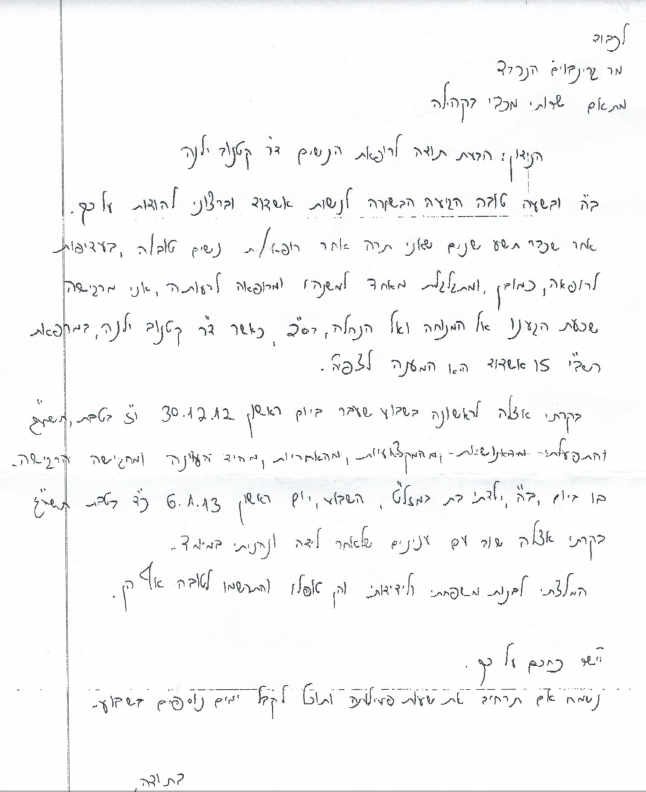 לכבוד
מר גרינבוים הנכבד
מתאם שרותי מכבי בקהילה
הנידון: הבעת תודה לרופאת הנשים ד"ר קטנוב ילנה
ב"ה ובשעה טובה הגיעה הבשורה לנשות אשדוד וברצוני להודות על כך.
אחר שכבר תשע שנים שאני תרה אחר רופא/ת נשים טובה, בעדיפות
לרופאה, כמובן, ומתגלגלת מאחד למשנהו ומרופאה לרעותה, אני מרגישה
שכעת הגענו אל המנוחה ואל הנחלה, בס"ד, כאשר ד"ר קטנוב ילנה, במרפאת
רשב"י 15 אשדוד היא המענה לצפיה.
בקרתי אצלה לראשונה בשבוע שעבר ביום ראשון 30.12.12 י"ז בטבת, תשע"ג
והתפעלתי- מהאנושיות, מהמקצועיות, מהאחריות, מהיד העדינה ומהגישה הרגישה.
בו ביום, ב"ה, ילדתי בת במזל"ט, השבוע, יום ראשון 6.1.13 כ"ד בטבת תשע"ג
בקרתי אצלה שוב עם ענינים שלאחר לידה ונהניתי במיוחד.
המלצתי לבנות משפחתי ולידידותי והן טופלו והתרשמו לטובה אף הן.
יישר כחכם על כך.
נשמח אם תרחיב את שעות פעילותה ותוכל לקבל ימים נוספים בשבוע.
בתודה,